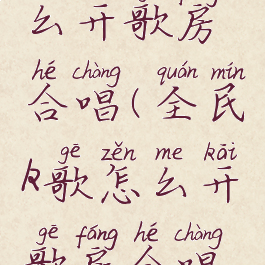 么开歌房
hé chàng quán mín
合唱(全民
gē zěn me kāi
k歌怎么开
gē fáng hé chàng
歌房合唱